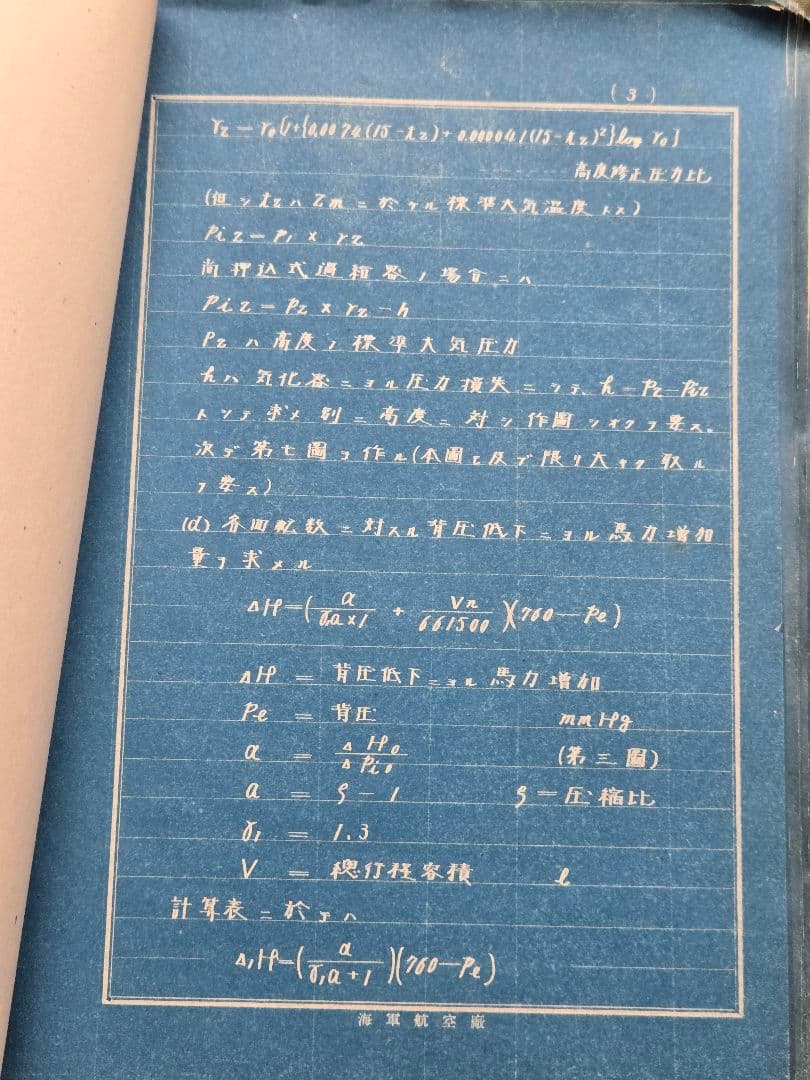 (3)
r₂ = r₀[1+{0.0074(15−t₂)+0.000041(15−t₂)²}log r₀]
高度修正圧力比
(但シ tzハZmニ於ケル標準大気温度トス)
Piz = P₁ × rz
尚押込式過種器ノ場合ニハ
Piz = Pz × rz − h
Pzハ高度ノ標準大気圧力
hハ気化器ニヨル圧力損失ニシテ、h = Pz − Piz
トシテ求メ別ニ高度ニ対シ作圖シオクヲ要ス。
次デ第七圖ヲ作ル(本圖ハ及ブ限リ大キク取ル
ヲ要ス)
(d) 各回転数ニ対スル背圧低下ニヨル馬力増加
量ヲ求メル
ΔHP=(α/(γ,a×1) + Vn/661500)(760−Pe)
ΔHP = 背圧低下ニヨル馬力増加
Pe = 背圧 mmHg
α = ΔHP₀/ΔPi₀ (第三圖)
a = ρ − 1 ρ = 圧縮比
γ₁ = 1.3
V = 總行程容積 l
計算表ニ於テハ
Δ₁HP=(α/(γ₁a+1))(760−Pe)
海軍航空廠